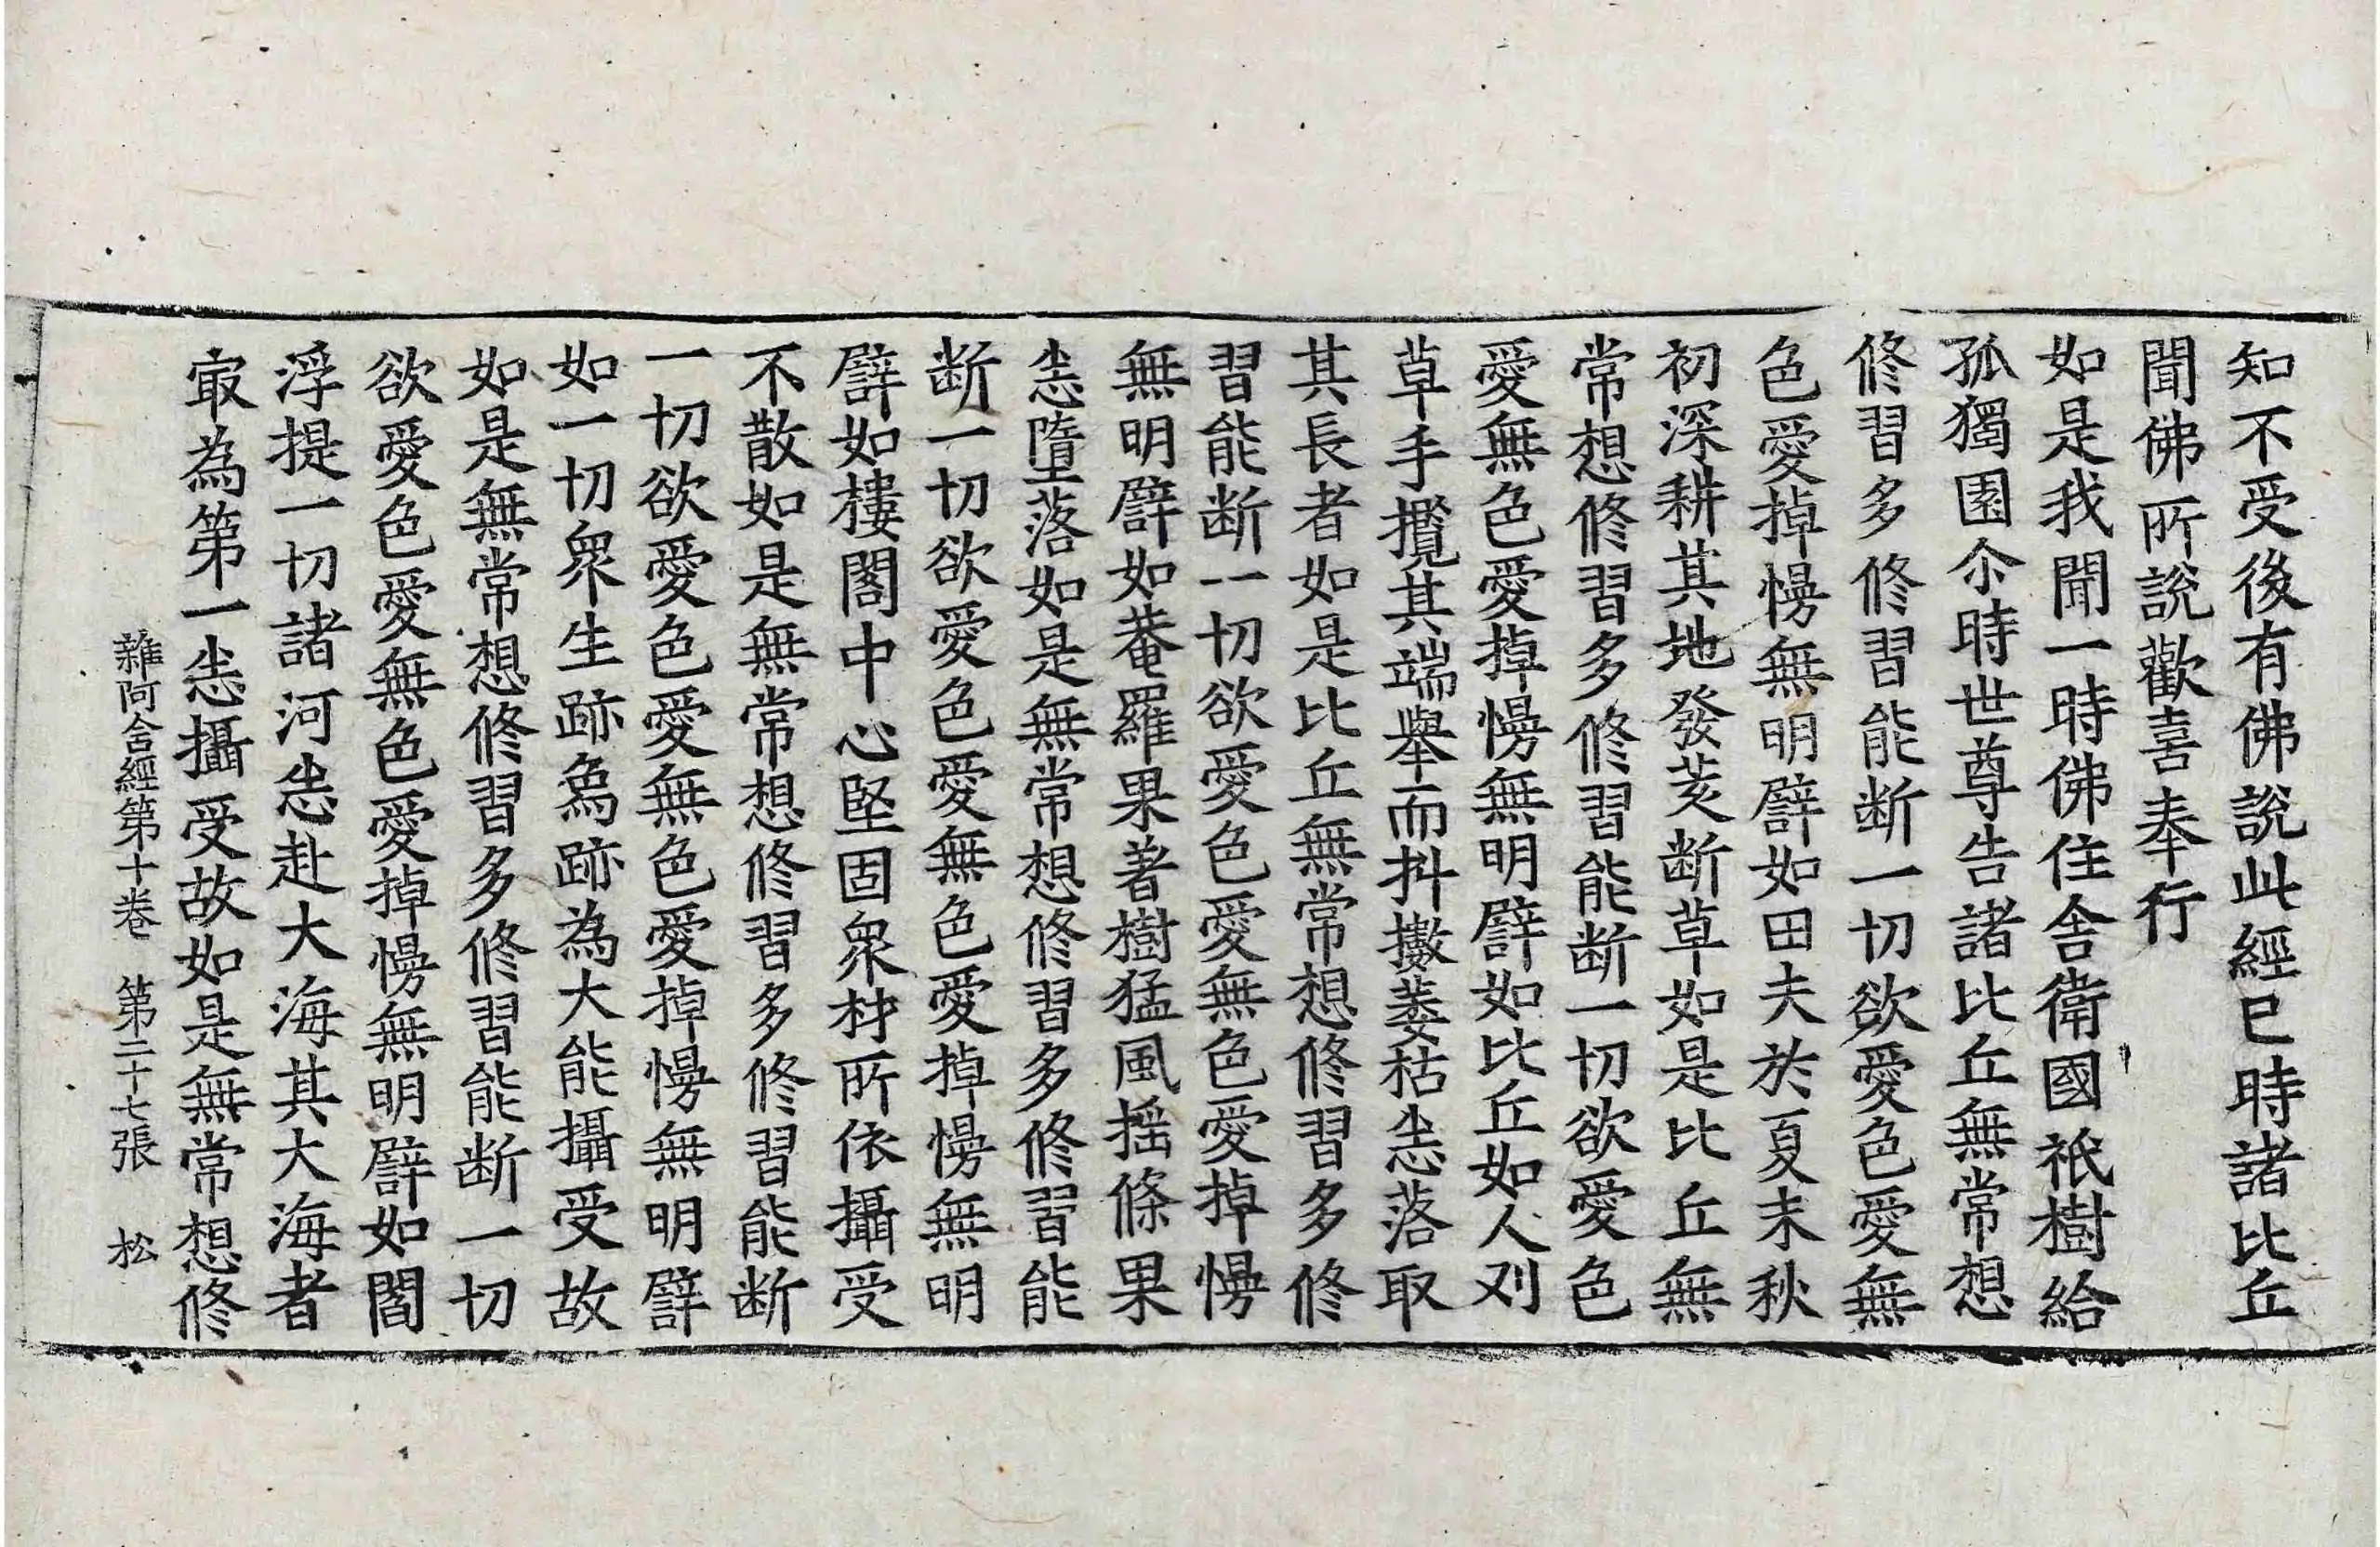 知不受後有佛說此經已時諸比丘
聞佛所說歡喜奉行
如是我聞一時佛住舍衛國祇樹給
孤獨園尒時世尊告諸比丘無常想
修習多修習能断一切欲愛色愛無
色愛掉慢無明譬如田夫於夏末秋
初深耕其地發荄断草如是比丘無
常想修習多修習能断一切欲愛色
愛無色愛掉慢無明譬如比丘如人刈
草手攬其端舉而抖擻萎枯㤀落取
其長者如是比丘無常想修習多修
習能断一切欲愛色愛無色愛掉慢
無明譬如菴羅果著樹猛風搖條果
㤀墮落如是無常想修習多修習能
断一切欲愛色愛無色愛掉慢無明
譬如樓閣中心堅固衆材所依攝受
不散如是無常想修習多修習能断
一切欲愛色愛無色愛掉慢無明譬
如一切衆生跡為跡為大能攝受故
如是無常想修習多修習能断一切
欲愛色愛無色愛掉慢無明譬如閻
浮提一切諸河㤀赴大海其大海者
㝡為第一㤀攝受故如是無常想修
雜阿含經第十卷 第二十七張 松